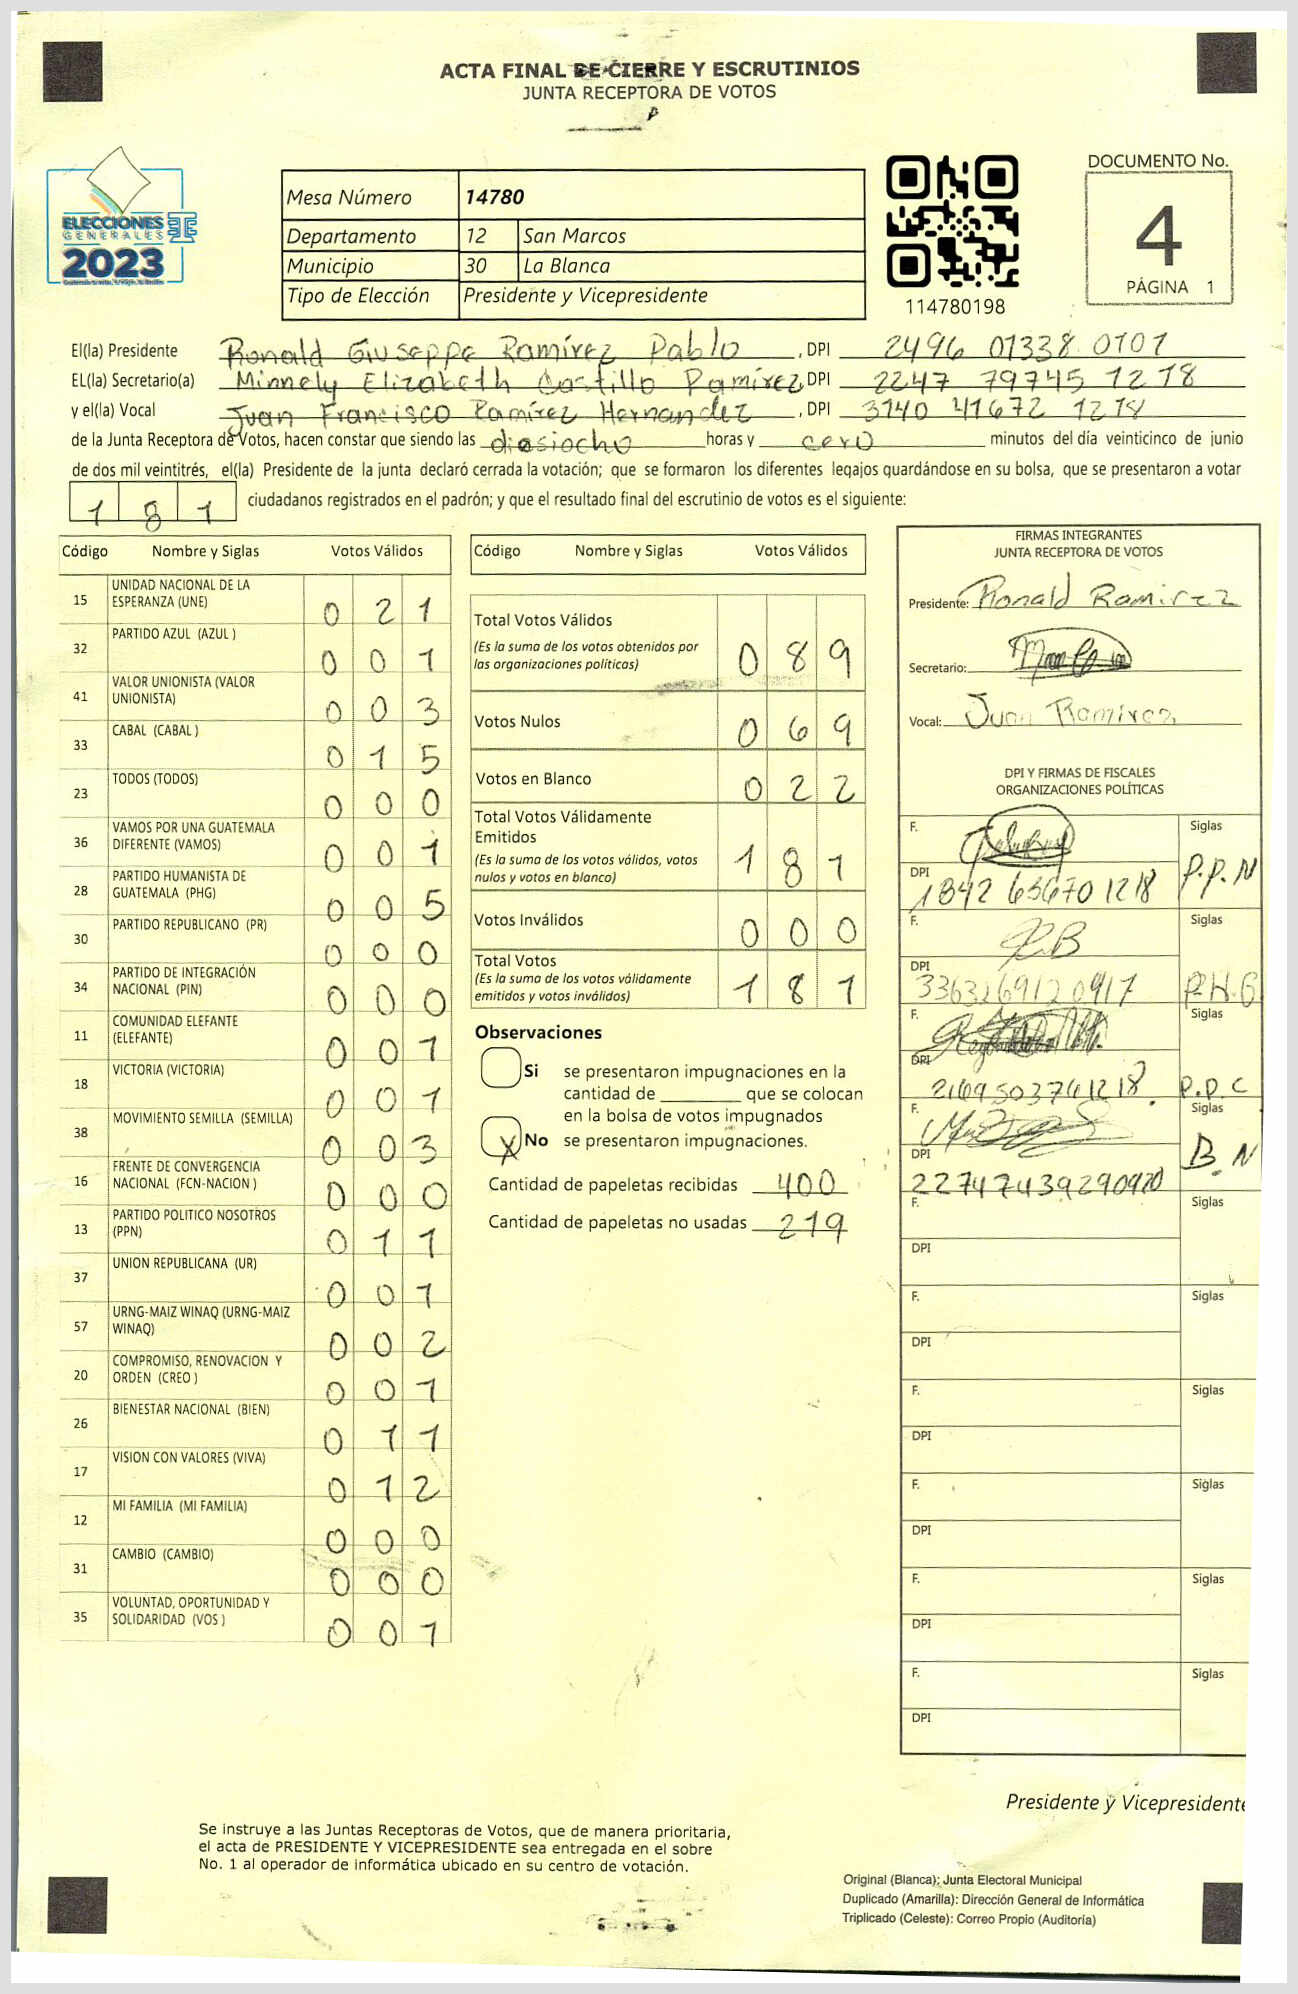 ACTA FINAL DE CIERRE Y ESCRUTINIOS
JUNTA RECEPTORA DE VOTOS
ELECCIONES
GENERALES
2023
Mesa Número 14780
Departamento 12 San Marcos
Municipio 30 La Blanca
Tipo de Elección Presidente y Vicepresidente
114780198
DOCUMENTO No.
4
PÁGINA 1
El(la) Presidente Ronald Giuseppe Ramírez Pablo , DPI 2496 01338 0101
EL(la) Secretario(a) Minnely Elizabeth Castillo Ramírez, DPI 2247 79745 1218
y el(la) Vocal Juan Francisco Ramírez Hernandez , DPI 3140 41672 1218
de la Junta Receptora de Votos, hacen constar que siendo las diesiocho horas y cero minutos del día veinticinco de junio
de dos mil veintitrés, el(la) Presidente de la junta declaró cerrada la votación; que se formaron los diferentes legajos guardándose en su bolsa, que se presentaron a votar
1 8 1 ciudadanos registrados en el padrón; y que el resultado final del escrutinio de votos es el siguiente:
Código Nombre y Siglas Votos Válidos
15 UNIDAD NACIONAL DE LA
ESPERANZA (UNE) 0 2 1
32 PARTIDO AZUL (AZUL ) 0 0 1
41 VALOR UNIONISTA (VALOR
UNIONISTA) 0 0 3
33 CABAL (CABAL ) 0 1 5
23 TODOS (TODOS) 0 0 0
36 VAMOS POR UNA GUATEMALA
DIFERENTE (VAMOS) 0 0 1
28 PARTIDO HUMANISTA DE
GUATEMALA (PHG) 0 0 5
30 PARTIDO REPUBLICANO (PR) 0 0 0
34 PARTIDO DE INTEGRACIÓN
NACIONAL (PIN) 0 0 0
11 COMUNIDAD ELEFANTE
(ELEFANTE) 0 0 1
18 VICTORIA (VICTORIA) 0 0 1
38 MOVIMIENTO SEMILLA (SEMILLA) 0 0 3
16 FRENTE DE CONVERGENCIA
NACIONAL (FCN-NACION ) 0 0 0
13 PARTIDO POLITICO NOSOTROS
(PPN) 0 1 1
37 UNION REPUBLICANA (UR) 0 0 1
57 URNG-MAIZ WINAQ (URNG-MAIZ
WINAQ) 0 0 2
20 COMPROMISO, RENOVACION Y
ORDEN (CREO ) 0 0 1
26 BIENESTAR NACIONAL (BIEN) 0 1 1
17 VISION CON VALORES (VIVA) 0 1 2
12 MI FAMILIA (MI FAMILIA) 0 0 0
31 CAMBIO (CAMBIO) 0 0 0
35 VOLUNTAD, OPORTUNIDAD Y
SOLIDARIDAD (VOS ) 0 0 1
Código Nombre y Siglas Votos Válidos
Total Votos Válidos
(Es la suma de los votos obtenidos por
las organizaciones políticas) 0 8 9
Votos Nulos 0 6 9
Votos en Blanco 0 2 2
Total Votos Válidamente
Emitidos
(Es la suma de los votos válidos, votos
nulos y votos en blanco) 1 8 1
Votos Inválidos 0 0 0
Total Votos
(Es la suma de los votos válidamente
emitidos y votos inválidos) 1 8 1
Observaciones
Si se presentaron impugnaciones en la
cantidad de ________ que se colocan
en la bolsa de votos impugnados
X No se presentaron impugnaciones.
Cantidad de papeletas recibidas 400
Cantidad de papeletas no usadas 219
FIRMAS INTEGRANTES
JUNTA RECEPTORA DE VOTOS
Presidente: Ronald Ramirez
Secretario:
Vocal: Juan Ramírez
DPI Y FIRMAS DE FISCALES
ORGANIZACIONES POLÍTICAS
F. Siglas
DPI 1842 63670 1218 P.P.N
F. Siglas
DPI 3363269120917 P.H.G
F. Siglas
DPI 2169503761218 P.P.C
F. Siglas
DPI 22747439290920 B.N
F. Siglas
DPI
F. Siglas
DPI
F. Siglas
DPI
F. Siglas
DPI
F. Siglas
DPI
F. Siglas
DPI
Presidente y Vicepresidente
Se instruye a las Juntas Receptoras de Votos, que de manera prioritaria,
el acta de PRESIDENTE Y VICEPRESIDENTE sea entregada en el sobre
No. 1 al operador de informática ubicado en su centro de votación.
Original (Blanca): Junta Electoral Municipal
Duplicado (Amarilla): Dirección General de Informática
Triplicado (Celeste): Correo Propio (Auditoría)